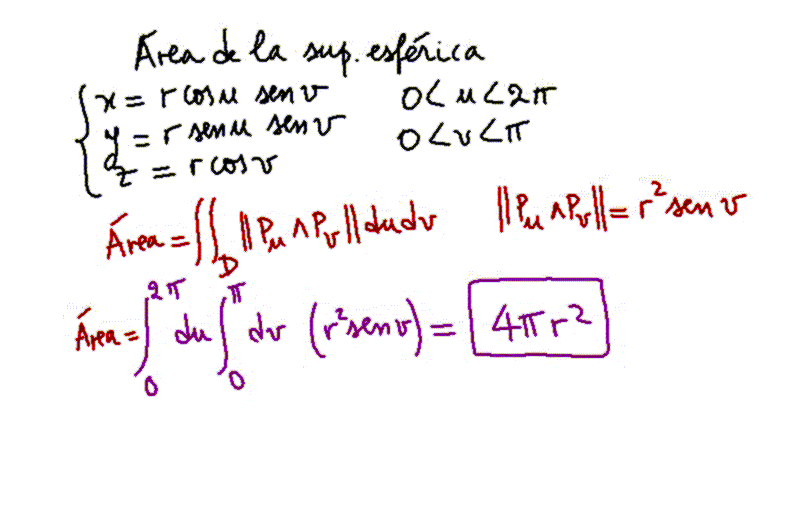 Área de la sup. esférica
x = r cos u sen v 0 < u < 2π
y = r sen u sen v 0 < v < π
z = r cos v
Área = ∬_D ‖P_u ∧ P_v‖ du dv ‖P_u ∧ P_v‖ = r² sen v
Área = ∫_0^{2π} du ∫_0^π dv (r² sen v) = 4πr²